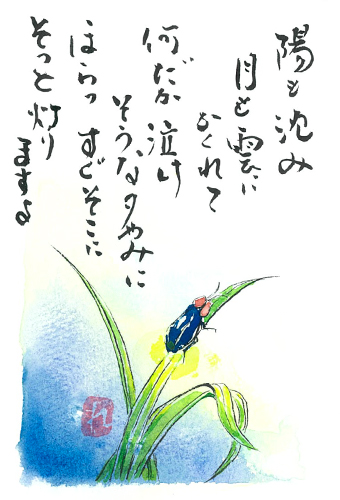 陽も沈み
月も雲に
かくれて
何だか泣け
そうな夕やみに
ほらっ すぐそこに
そっと灯り
ますよ